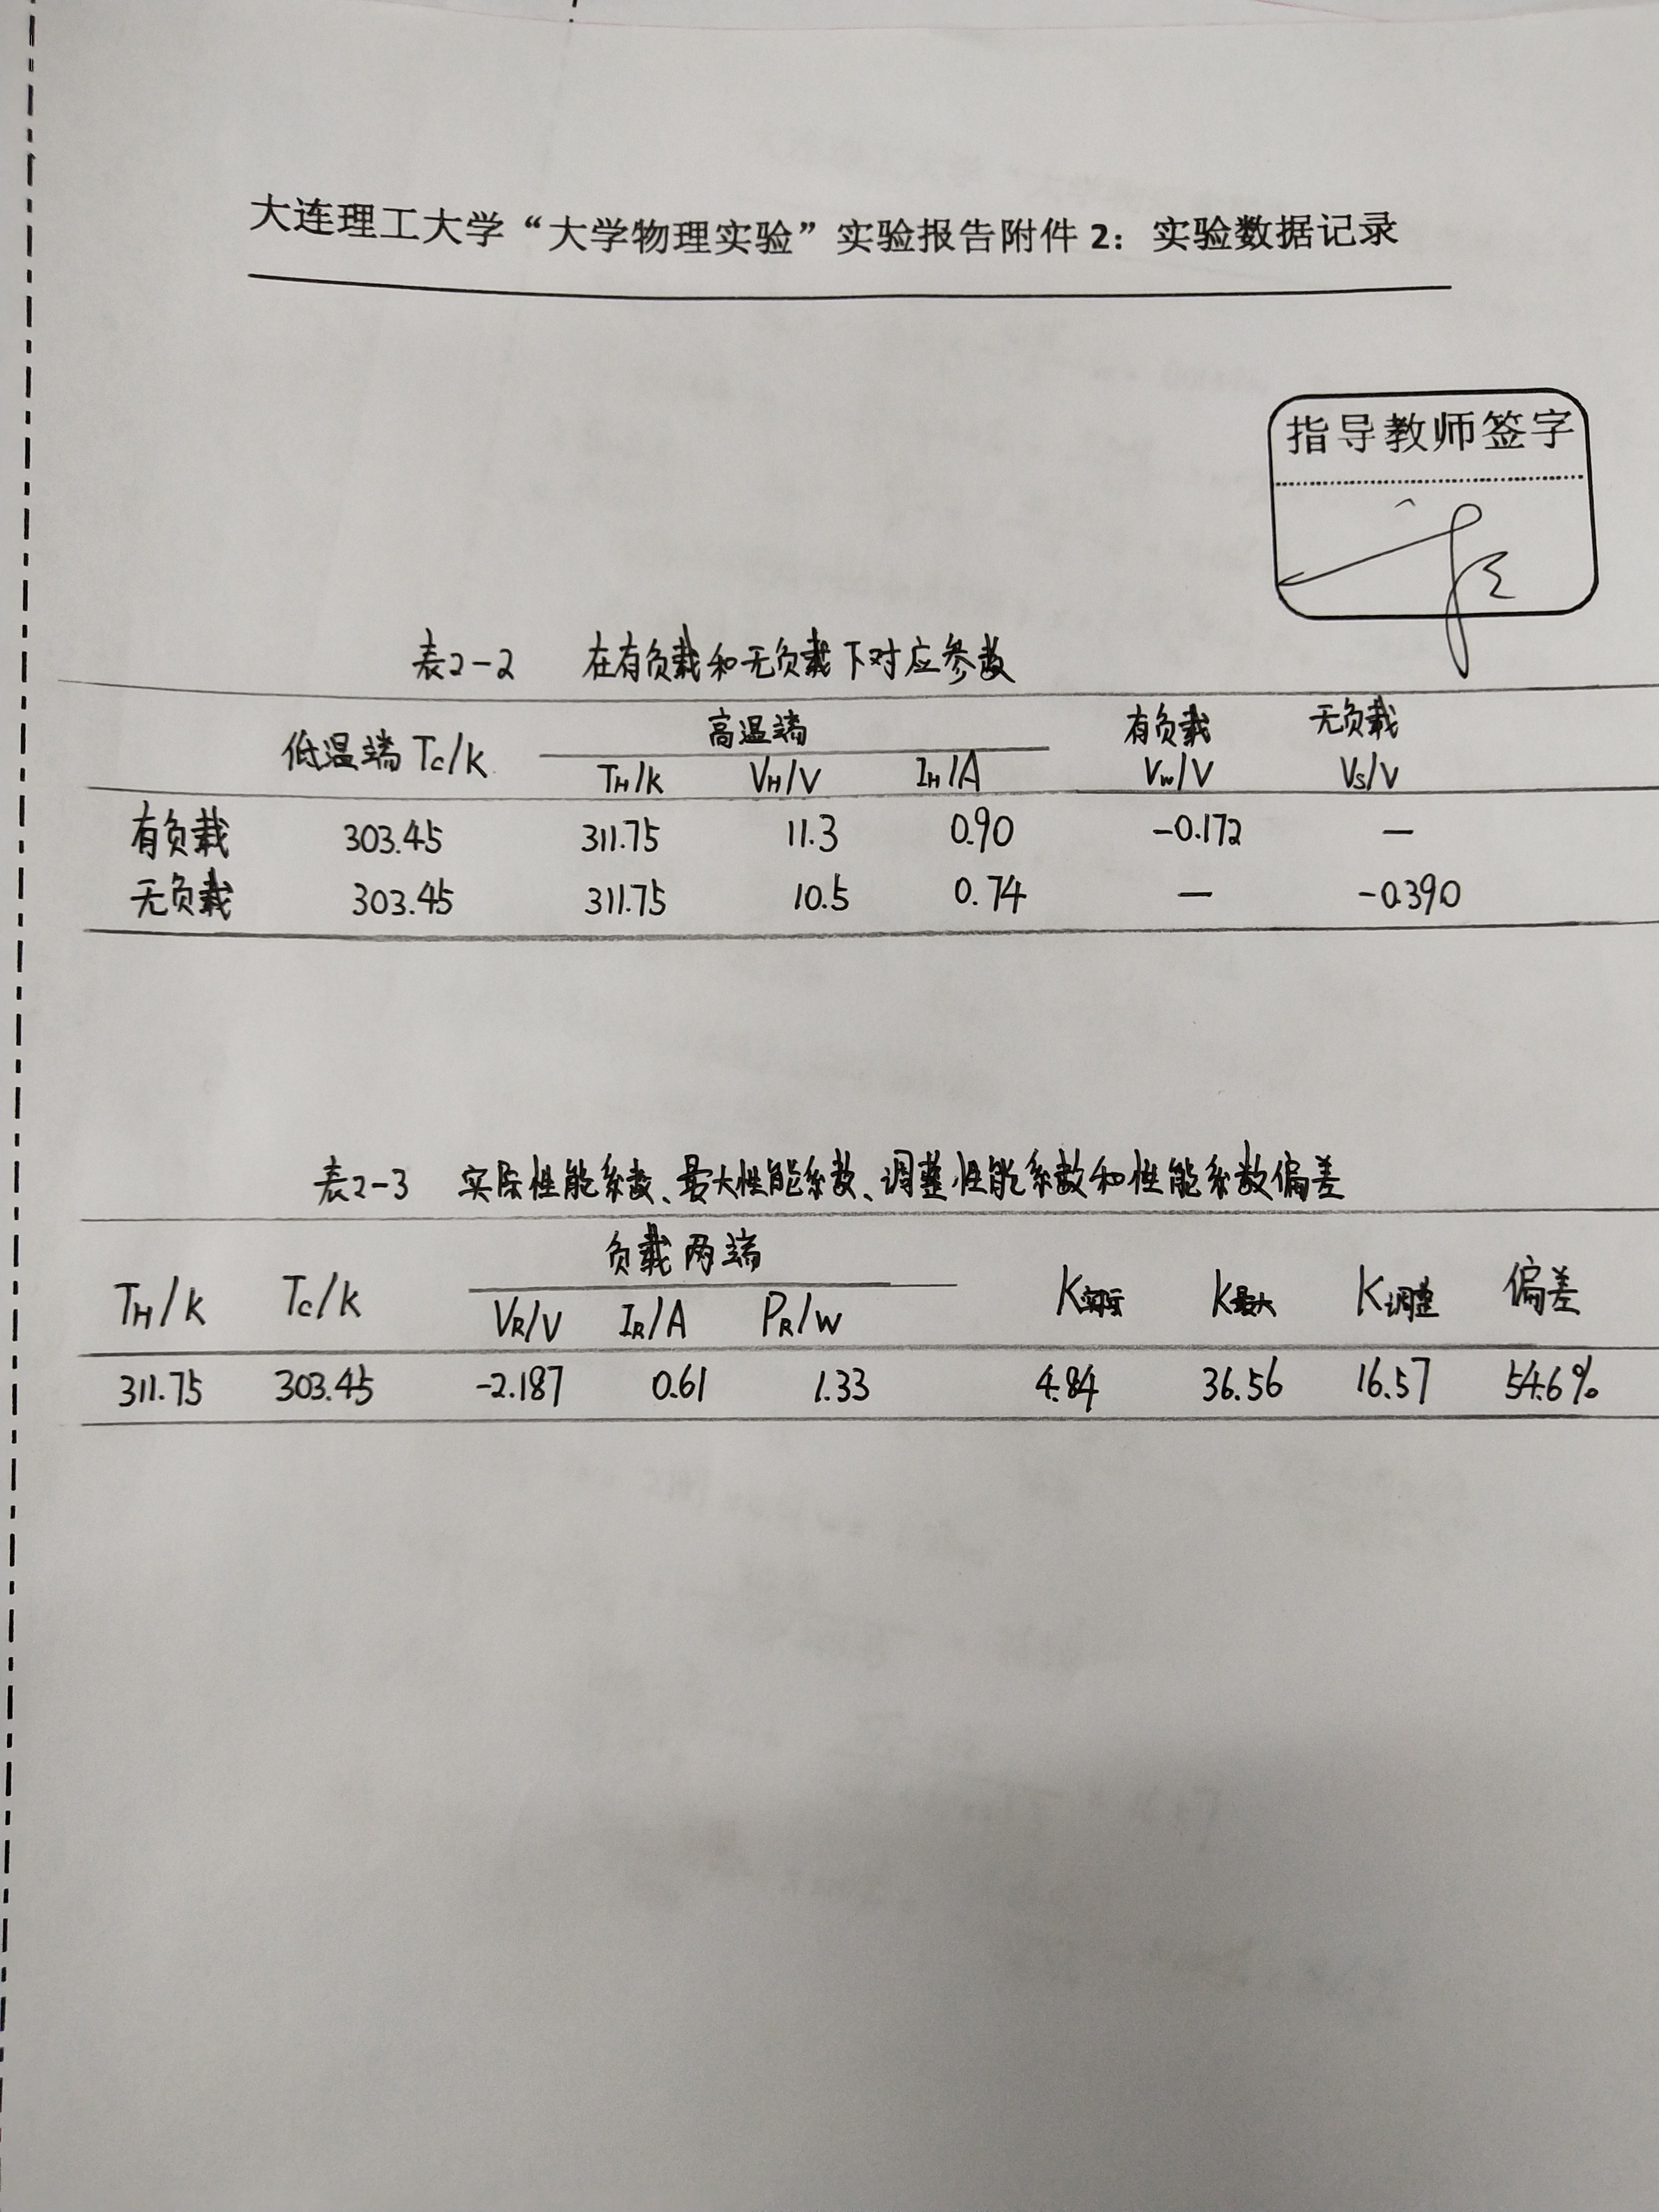 大连理工大学“大学物理实验”实验报告附件 2：实验数据记录
指导教师签字
表2-2 在有负载和无负载下对应参数
低温端 Tc/K 高温端 有负载 无负载
TH/K VH/V IH/A Vw/V Vs/V
有负载 303.45 311.75 11.3 0.90 -0.172 —
无负载 303.45 311.75 10.5 0.74 — -0.390
表2-3 实际性能系数、最大性能系数、调整性能系数和性能系数偏差
TH/K Tc/K 负载两端 K实际 K最大 K调整 偏差
VR/V IR/A PR/W
311.75 303.45 -2.187 0.61 1.33 4.84 36.56 16.57 54.6%